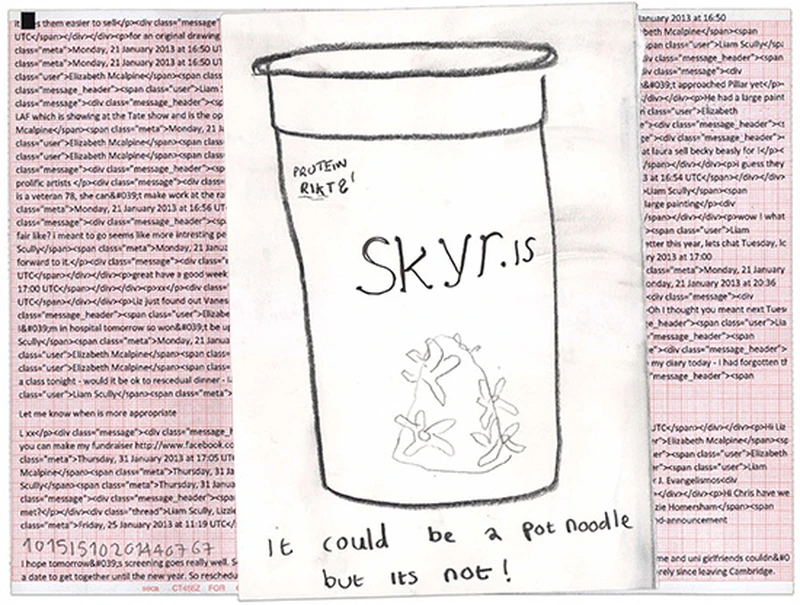 it es them easier to sell</p><div class="message
UTC</span></div></div><p>for an original drawing
class="meta">Monday, 21 January 2013 at 16:50 UT
class="meta">Monday, 21 January 2013 at 16:50 UT
class="user">Elizabeth Mcalpine</span><span class
class="message_header"><span class="user">Liam S
class="message"><div class="message_header"><sp
LAF which is showing at the Tate show and is the op
Mcalpine</span><span class="meta">Monday, 21 J
class="user">Elizabeth Mcalpine</span><span class
class="user">Elizabeth Mcalpine</span><span class
class="message"><div class="message_header"><s
prolific artists </p><div class="message"><div class
is a veteran 78, she can&#039;t make work at the ra
class="meta">Monday, 21 January 2013 at 16:56 UT
class="message"><div class="message_header"><s
fair like? i meant to go seems like more intresting pe
Scully</span><span class="meta">Monday, 21 Janu
forward to it.</p><div class="message"><div class=
UTC</span></div></div><p>great have a good week
17:00 UTC</span></div></div><p>xx</p><div class=
UTC</span></div></div><p>Liz just found out Vanes
class="message_header"><span class="user">Elizabe
I&#039;m in hospital tomorrow so won&#039;t be up
Scully</span><span class="meta">Monday, 21 Janu
class="user">Elizabeth Mcalpine</span><span class
class="user">Elizabeth Mcalpine</span><span class
a class tonight - would it be ok to rescedual dinner -
class="user">Liam Scully</span><span class="meta"
Let me know when is more appropriate
L xx</p><div class="message"><div class="message_h
you can make my fundraiser http://www.facebook.co
class="meta">Thursday, 31 January 2013 at 17:05 UT
Mcalpine</span><span class="meta">Thursday, 31 Ja
class="meta">Thursday, 31 January
class="message"><div class="message_header"><span
met?</p><div class="thread">Liam Scully, Lizzie
class="meta">Friday, 25 January 2013 at 11:19 UTC</
10151510201440767
I hope tomorrow&#039;s screening goes really well. S
a date to get together until the new year. So reschedu
seca CT466Z FOR
PROTEIN
RIKT &!
Skyr.is
It could be a pot noodle
but its not!
January 2013 at 16:50
span class="user">Liam Scully</spa
class="user">Liam Scully</span><sp
class="message"><div
&#039;t approached Pillar yet</p>
/div></div><p>He had a large paint
<span class="user">Elizabeth
<div class="message_header"><
class="message_header"><
at laura sell becky beasly for !</p><
></div></div><p>i guess they
at 16:54 UTC</span></div>
Liam Scully</span><span
large painting</p><div
></div></div><p>wow ! what
><span class="user">Liam
etter this year, lets chat Tuesday, lo
ry 2013 at 17:00
class="meta">Monday, 21 January
onday, 21 January 2013 at 20:36
class="message"><div
Oh I thought you meant next Tues
e_header"><span class="user">Lia
"><div class="message_header">
my diary today - I had forgotten th
class="message_header"><span
UTC</span></div></div><p>Hi Liz
>Elizabeth Mcalpine</span><sp
<span class="user">Elizabeth
><span class="user">Liam
J. Evangelismos<div
</div></div><p>Hi Chris have we
zie Homersham</span><span
nd-announcement
me and uni girlfriends couldn&#0
rely since leaving Cambridge.